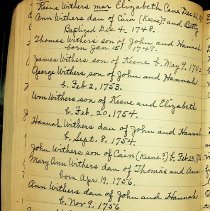 Keene Withers mar Elizabeth Cane Dec
Ann Withers dau of Cain (Keene?) and Betty
Baptized Dec 4, 1748.
Thomas Withers son of John and Hannah
born Jan 1st 1749.
James Withers son of Keene & May 9, 1752
George Withers son of John and Hannah
b. Feb 2, 1753.
Wm Withers son of Keene and Elizabeth
b. Feb. 20, 1754.
Hannah Withers dau of John and Hannah
b. Sept. 8, 1754.
John Withers son of Cain (Keene?) b. Feb
Mary Ann Withers dau of Thomas and Ann
born Apr 19, 1756.
Ann Withers dau of John and Hannah
b. Nov. 9, 1756